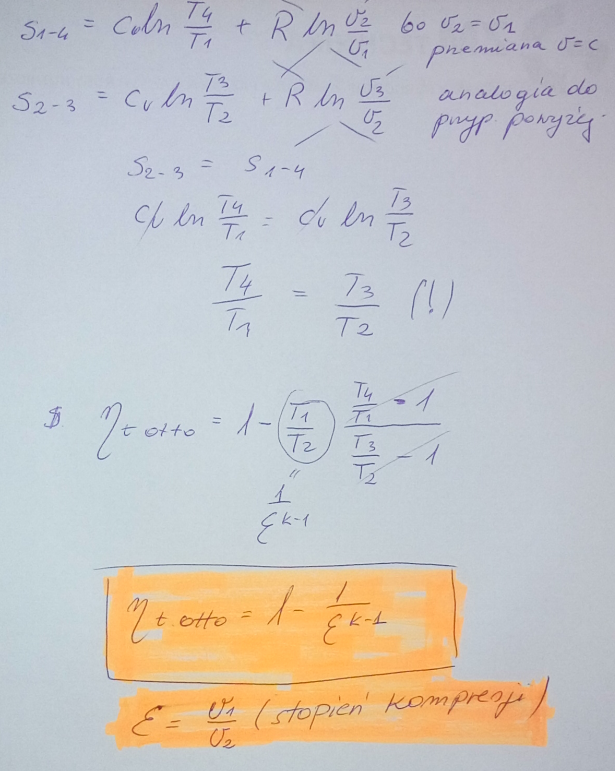 S₁₋₄ = Cᵥ ln T₄/T₁ + R ln v₂/v₁ bo v₂ = v₁
przemiana v=c
S₂₋₃ = Cᵥ ln T₃/T₂ + R ln v₃/v₂ analogia do
przyp. powyżej.
S₂₋₃ = S₁₋₄
Cᵥ ln T₄/T₁ = Cᵥ ln T₃/T₂
T₄/T₁ = T₃/T₂ (!)
η t otto = 1 - T₁/T₂ (T₄/T₁ - 1)/(T₃/T₂ - 1)
"
1/ε^(k-1)
η t. otto = 1 - 1/ε^(k-1)
ε = v₁/v₂ (stopień kompresji)